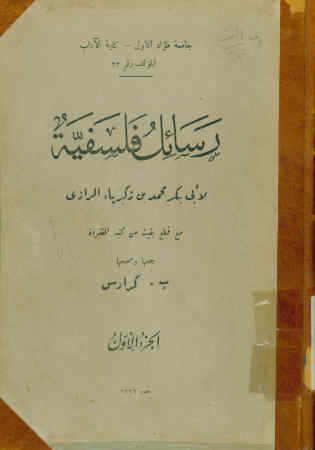 جامعة فؤاد الاول - كلية الآداب
المؤلف رقم ٢٢
رَسَائِلُ فَلسَفِيَّةٌ
لأبى بكر محمد بن زكرياء الرازى
مع قطع بقيت من كتبه المفقودة
جمعها وصححها
ب. كراوس
الجزء الأوّل
مصر ١٩٣٩